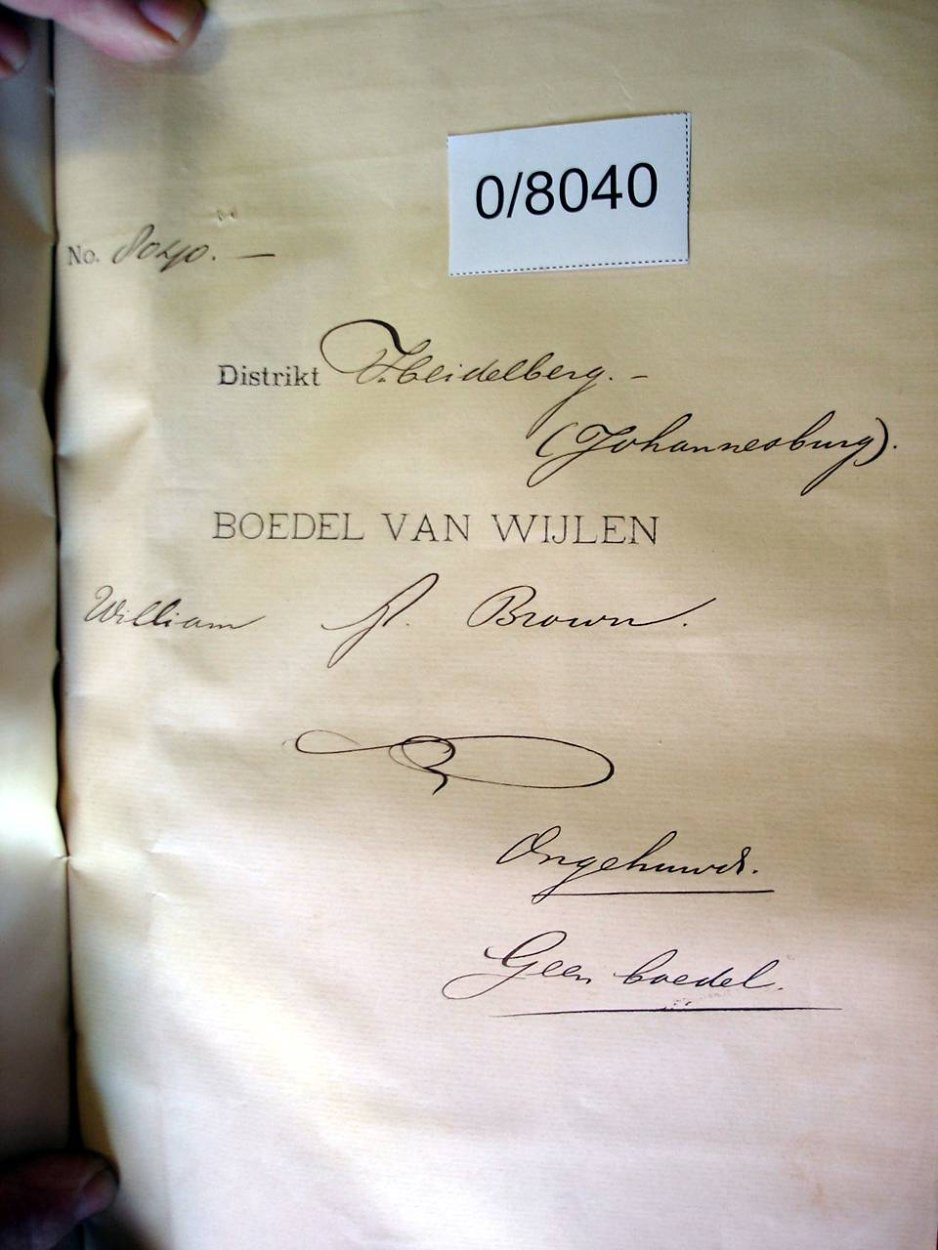 0/8040
No. 8040. —
Distrikt Heidelberg. —
(Johannesburg).
BOEDEL VAN WIJLEN
William Brown.
Ongehuwd.
Geen boedel.